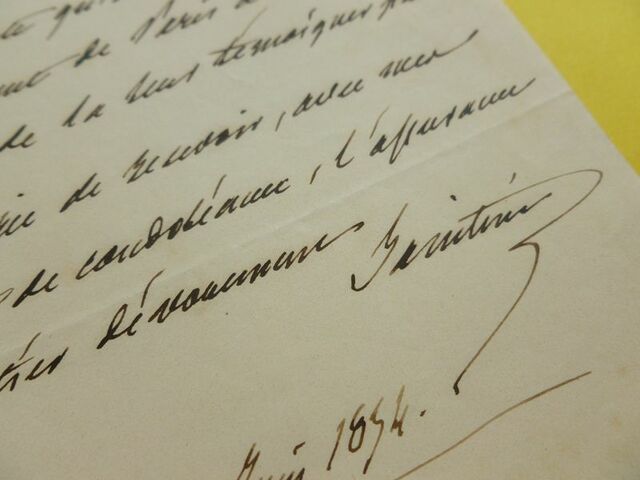 de Paris
de la leur témoigner
de recevoir, avec mes
de condoléance, l'assurance
très dévouement Saintine
Juin 1854.